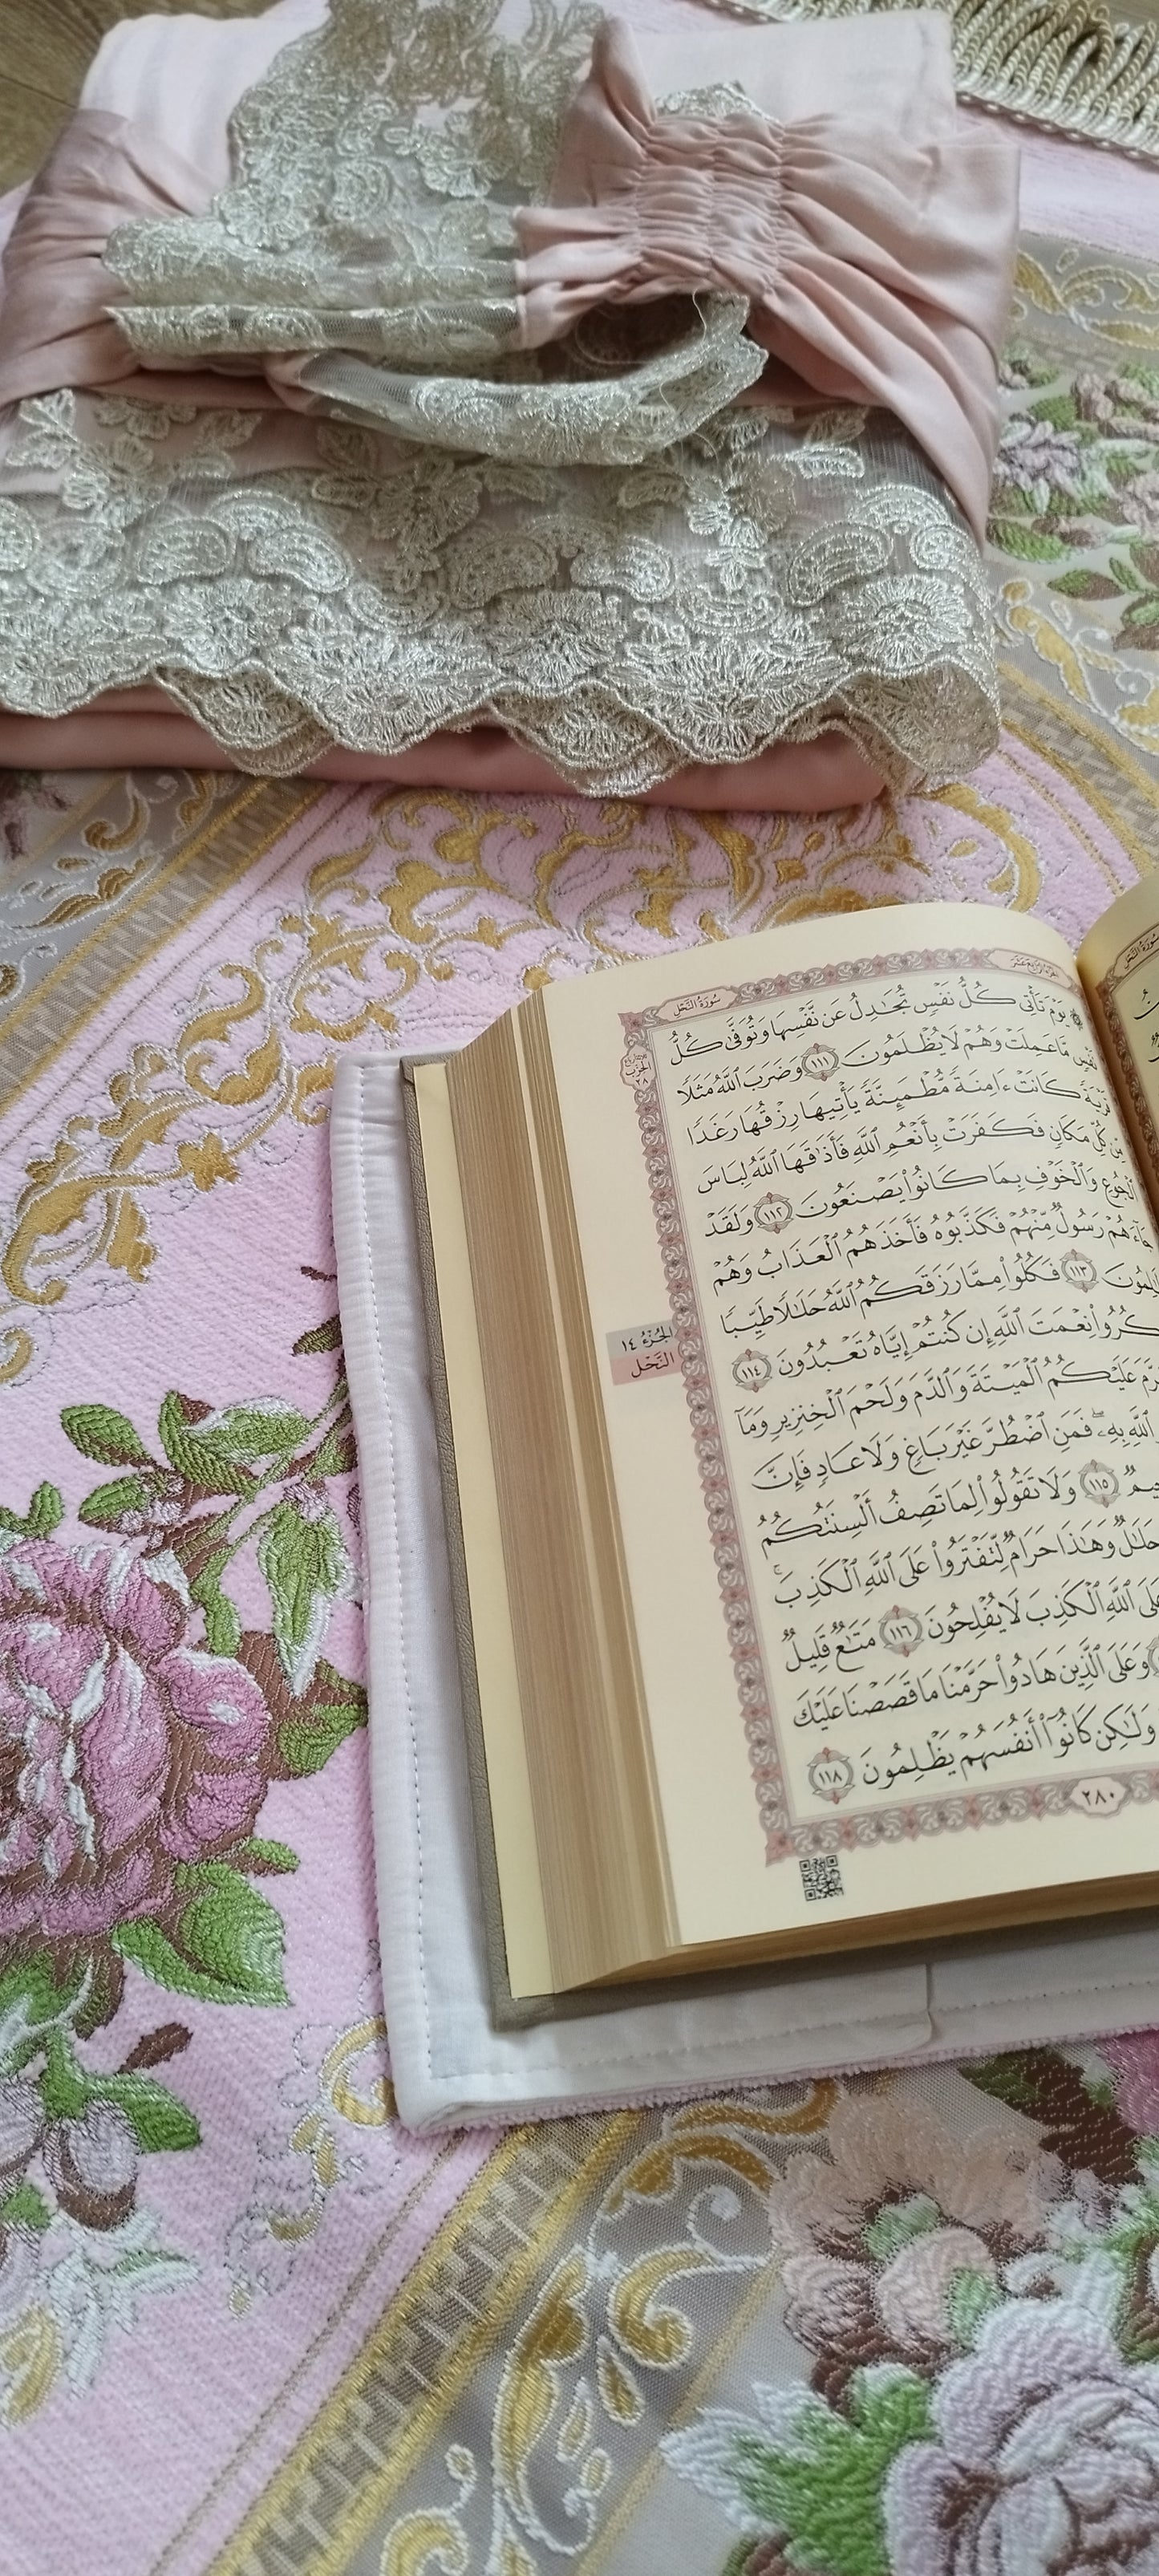 سُورَةُ النَّحْلِ
۞ يَوْمَ تَأْتِي كُلُّ نَفْسٍ تُجَٰدِلُ عَن نَّفْسِهَا وَتُوَفَّىٰ كُلُّ
نَفْسٍ مَّا عَمِلَتْ وَهُمْ لَا يُظْلَمُونَ ١١١ وَضَرَبَ ٱللَّهُ مَثَلًا
قَرْيَةً كَانَتْ ءَامِنَةً مُّطْمَئِنَّةً يَأْتِيهَا رِزْقُهَا رَغَدًا
مِّن كُلِّ مَكَانٍ فَكَفَرَتْ بِأَنْعُمِ ٱللَّهِ فَأَذَٰقَهَا ٱللَّهُ لِبَاسَ
ٱلْجُوعِ وَٱلْخَوْفِ بِمَا كَانُوا۟ يَصْنَعُونَ ١١٢ وَلَقَدْ
جَآءَهُمْ رَسُولٌ مِّنْهُمْ فَكَذَّبُوهُ فَأَخَذَهُمُ ٱلْعَذَابُ وَهُمْ
١١٣ فَكُلُوا۟ مِمَّا رَزَقَكُمُ ٱللَّهُ حَلَٰلًا طَيِّبًا
نِعْمَتَ ٱللَّهِ إِن كُنتُمْ إِيَّاهُ تَعْبُدُونَ ١١٤
عَلَيْكُمُ ٱلْمَيْتَةَ وَٱلدَّمَ وَلَحْمَ ٱلْخِنزِيرِ وَمَآ
ٱللَّهِ بِهِۦ ۖ فَمَنِ ٱضْطُرَّ غَيْرَ بَاغٍ وَلَا عَادٍ فَإِنَّ
١١٥ وَلَا تَقُولُوا۟ لِمَا تَصِفُ أَلْسِنَتُكُمُ
حَلَٰلٌ وَهَٰذَا حَرَامٌ لِّتَفْتَرُوا۟ عَلَى ٱللَّهِ ٱلْكَذِبَ ۚ
عَلَى ٱللَّهِ ٱلْكَذِبَ لَا يُفْلِحُونَ ١١٦ مَتَٰعٌ قَلِيلٌ
وَعَلَى ٱلَّذِينَ هَادُوا۟ حَرَّمْنَا مَا قَصَصْنَا عَلَيْكَ
وَلَٰكِن كَانُوٓا۟ أَنفُسَهُمْ يَظْلِمُونَ ١١٨
٢٨٠
الجُزْءُ ١٤
النَّحْل
سُورَةُ النَّحْلِ